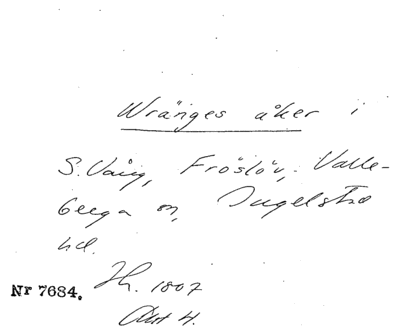 Wränges åker i
S. Vång, Fröslöv, Valle-
berga sn, Ingelstad
hd.
Jh. 1807
Nr 7684.
Akt 4.